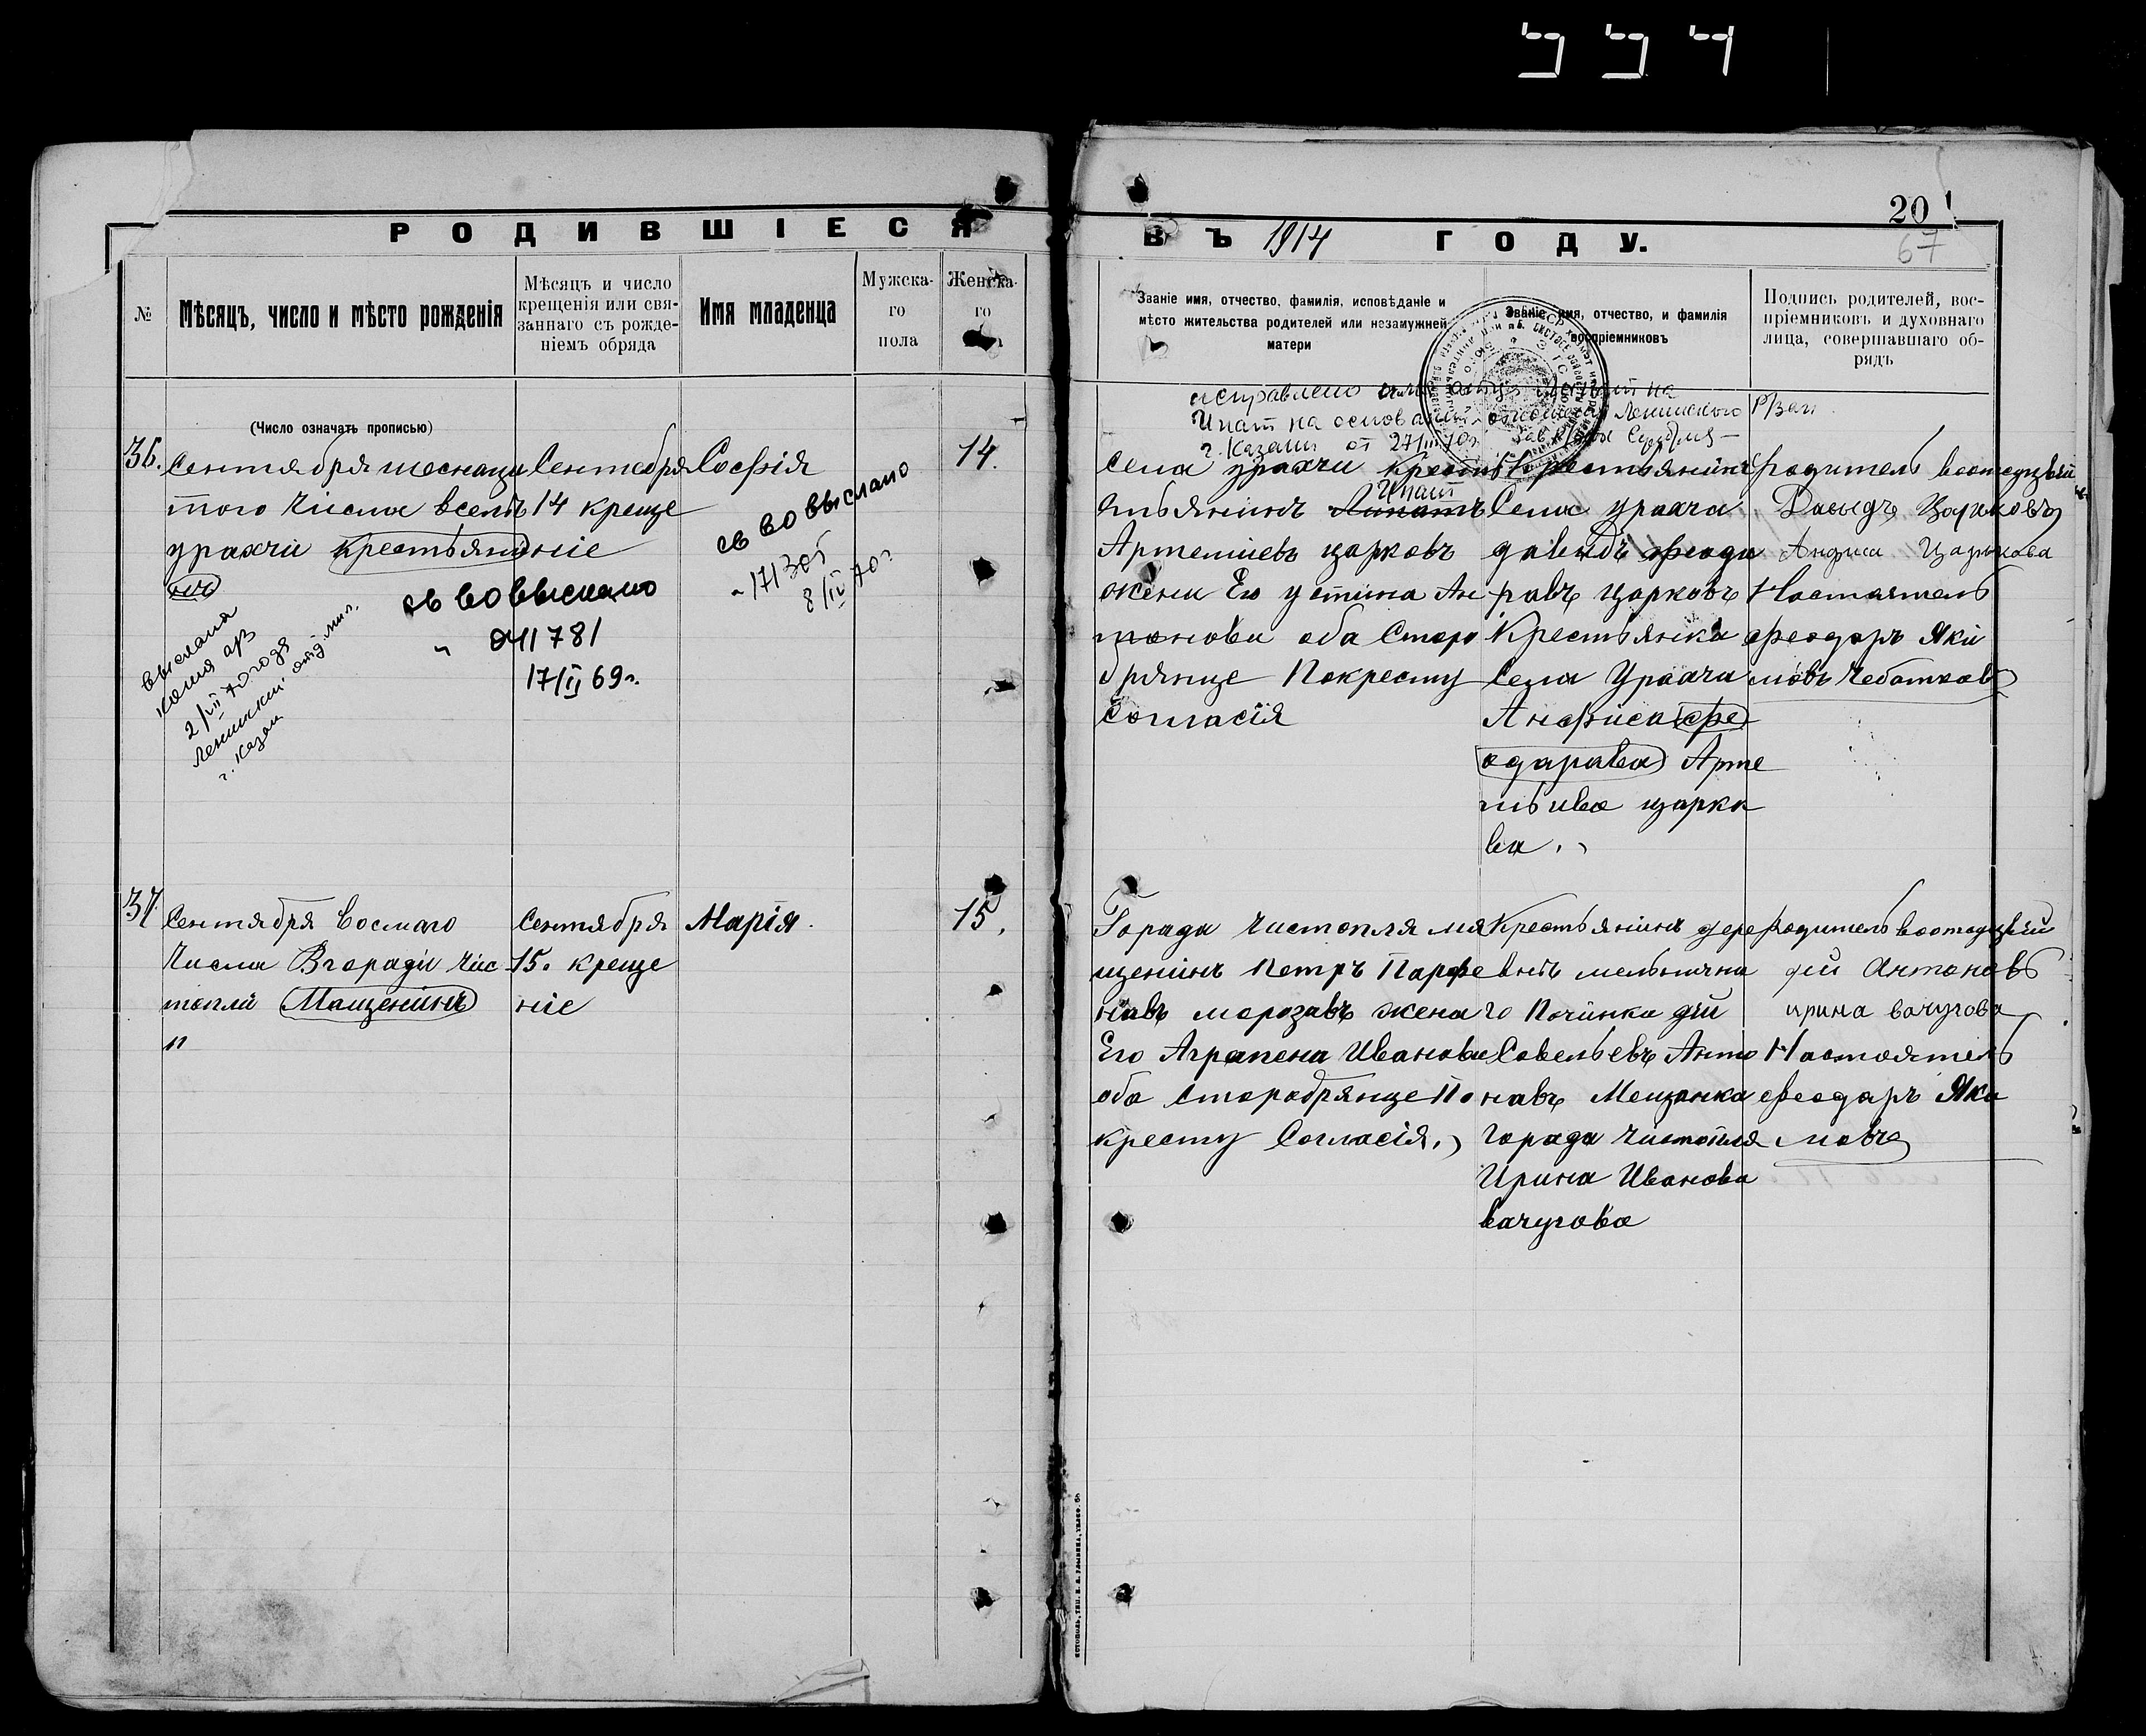 20
67
РОДИВШІЕСЯ
ВЪ 1914 ГОДУ.
№
Мѣсяцъ, число и мѣсто рожденія
Мѣсяцъ и число
крещенія или свя-
заннаго съ рожде-
ніемъ обряда
Имя младенца
Мужска-
го
пола
Женска-
го
Званіе имя, отчество, фамилія, исповѣданіе и
мѣсто жительства родителей или незамужней
матери
Званіе имя, отчество, и фамилія
воспріемниковъ
Подпись родителей, вос-
пріемниковъ и духовнаго
лица, совершавшаго об-
рядъ
(Число означать прописью)
исправлено имя отца на
Ипат на основании Ленинского
г. Казани от 27/III 70г.
36.
Сентября шеснаца
того Числа всели
урахчи крестьяни
нъ
Сентебря
14 креще
ніе
Софія
14.
св во выслано
171305
8/IV 70г
св во выслано
" 041781
17/II 69г.
выслана
копия арх
2/VII 70 года
Ленинский
г. Казан
Села урахчи крест
тьянинъ Липатъ
Ипат
Артемиевъ царковъ
жена Его устина Ан
тонова оба Старо
брянце Покресту
Согласія
Крестьянинъ
Села урахчи
давыдъ феода
равъ царковъ
Крестьянка
Села Урахчи
Анфиса фе
одарава Арте
мьива царка
ва.
родитель
Давыдъ Царьковъ
Анфиса Царькова
Настаятель
феодаръ Яки
мовъ Чеботковъ
37.
Сентября Восмаго
Числа Вгаради Чис
топли Мащенинъ
Сентября
15. креще
ніе
Марія.
15.
Гарада Чистопля ма
щенинъ Петръ Парфе
навъ морозавъ жена
Его Аграпена Иванова
оба Старобрянце По
кресту Согласія.
Крестьянинъ дере
внъ мельнична
го Починка дій
Савельевъ Анто
навъ Мещанка
Гарада Чистопля
Ирина Иванова
вачугова
родитель
дій Антоновъ
ирина вачугова
Настоятель
феодаръ Яки
мовъ